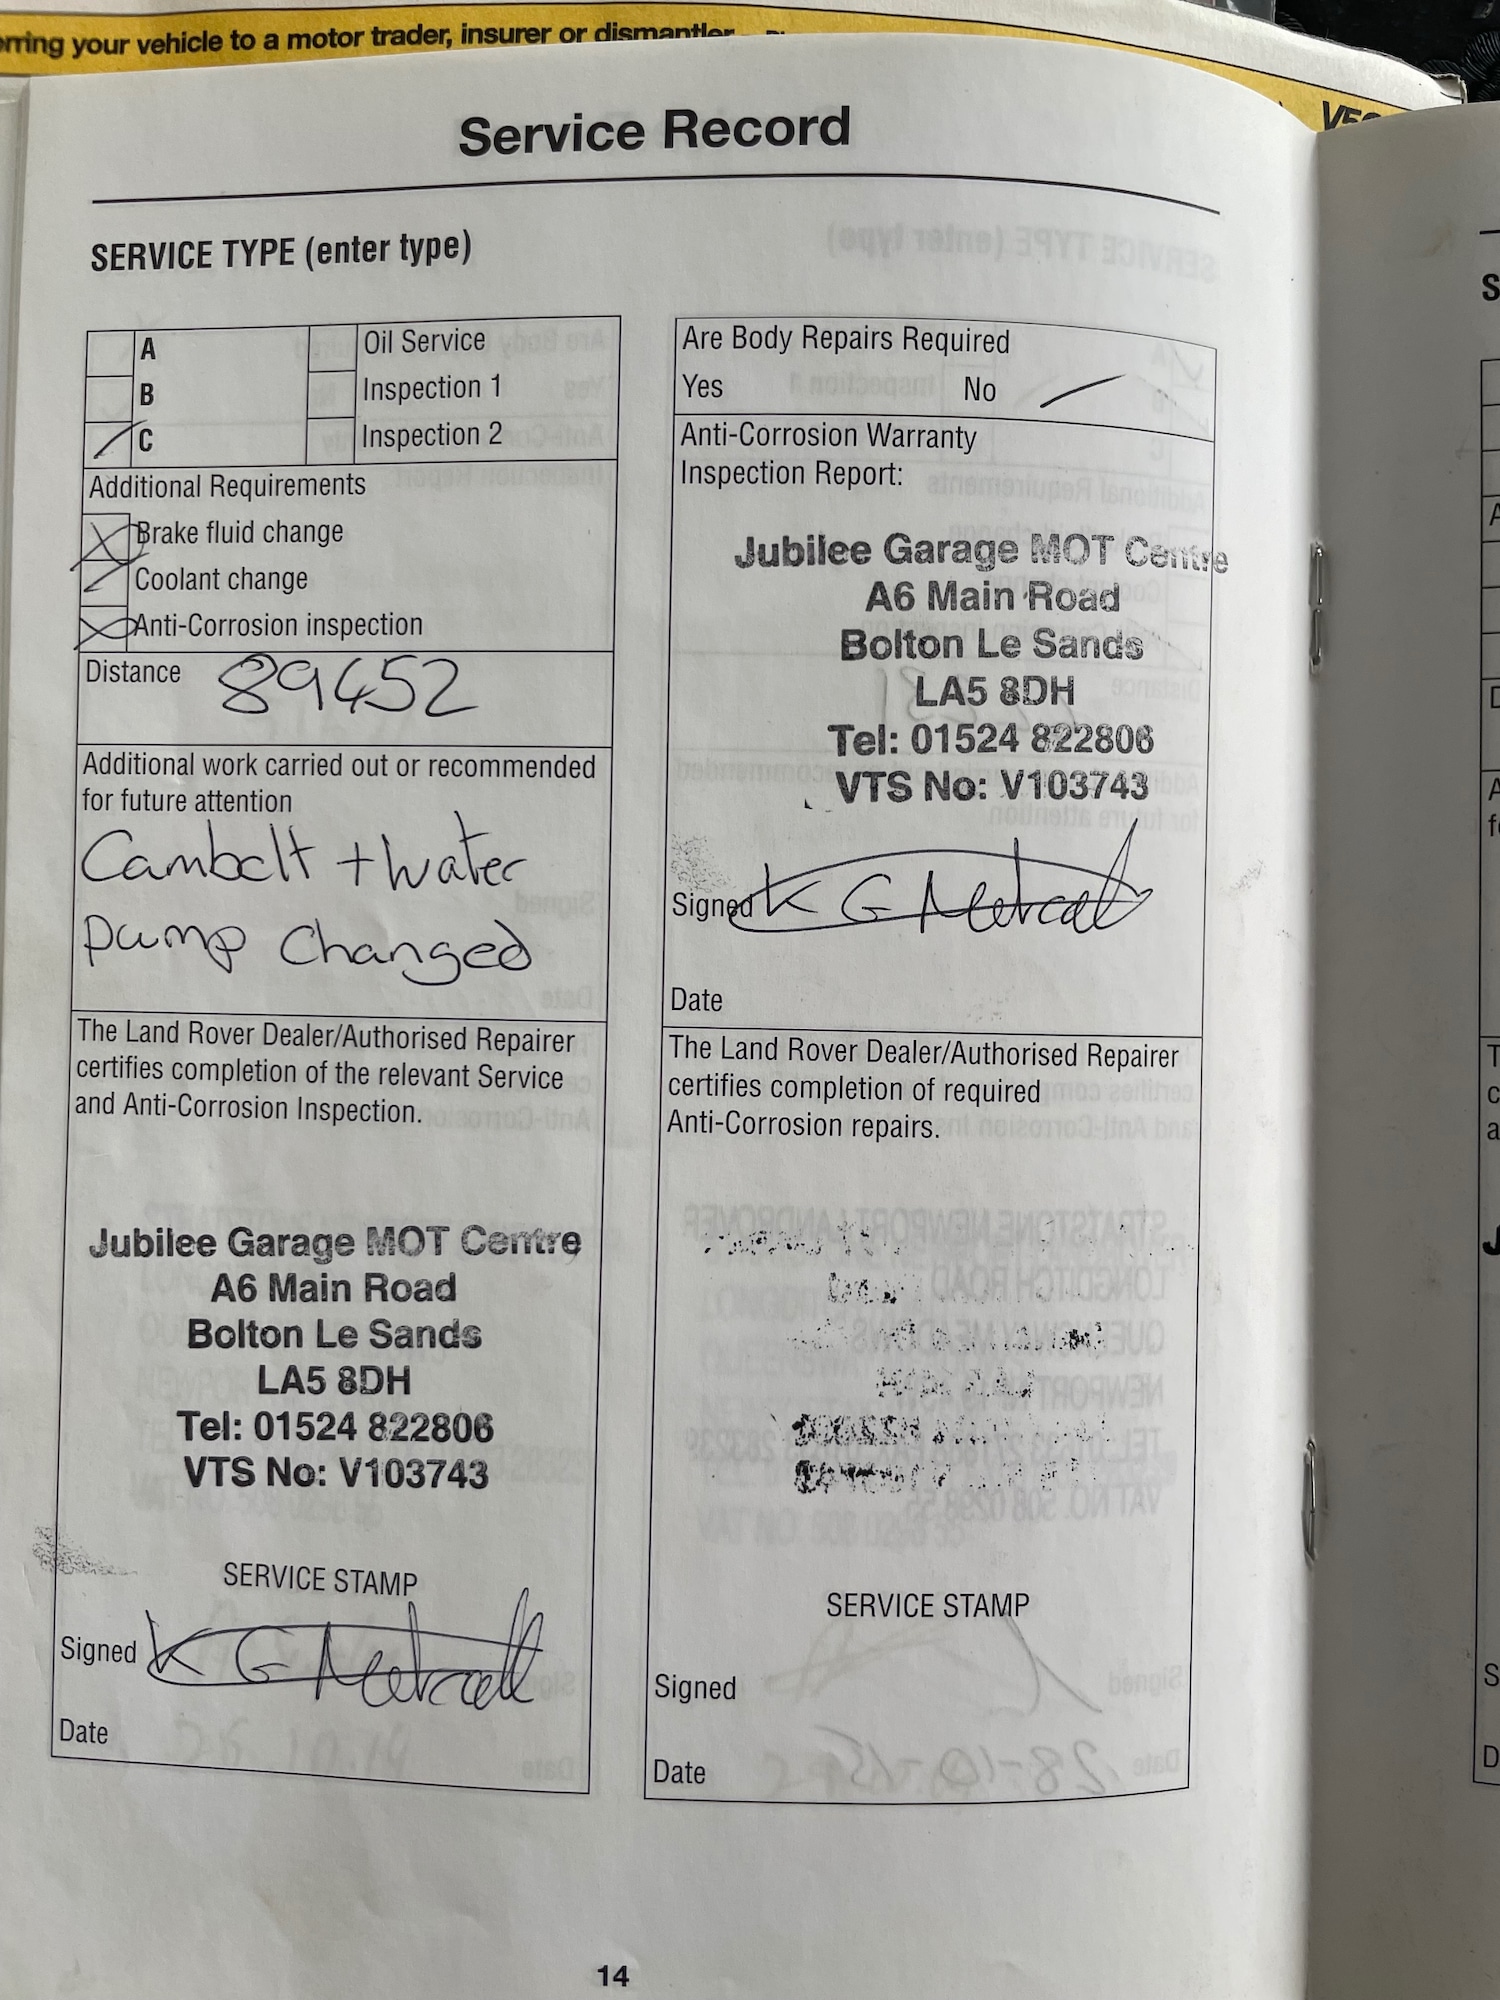 rring your vehicle to a motor trader, insurer or dismantler
Service Record
SERVICE TYPE (enter type)
A
Oil Service
B
Inspection 1
C
Inspection 2
Additional Requirements
Brake fluid change
Coolant change
Anti-Corrosion inspection
Distance 89452
Additional work carried out or recommended
for future attention
Cambelt + water
pump changed
The Land Rover Dealer/Authorised Repairer
certifies completion of the relevant Service
and Anti-Corrosion Inspection.
Jubilee Garage MOT Centre
A6 Main Road
Bolton Le Sands
LA5 8DH
Tel: 01524 822806
VTS No: V103743
SERVICE STAMP
Signed K G Metcalf
Date
Are Body Repairs Required
Yes No
Anti-Corrosion Warranty
Inspection Report:
Jubilee Garage MOT Centre
A6 Main Road
Bolton Le Sands
LA5 8DH
Tel: 01524 822806
VTS No: V103743
Signed K G Metcalf
Date
The Land Rover Dealer/Authorised Repairer
certifies completion of required
Anti-Corrosion repairs.
SERVICE STAMP
Signed
Date
14